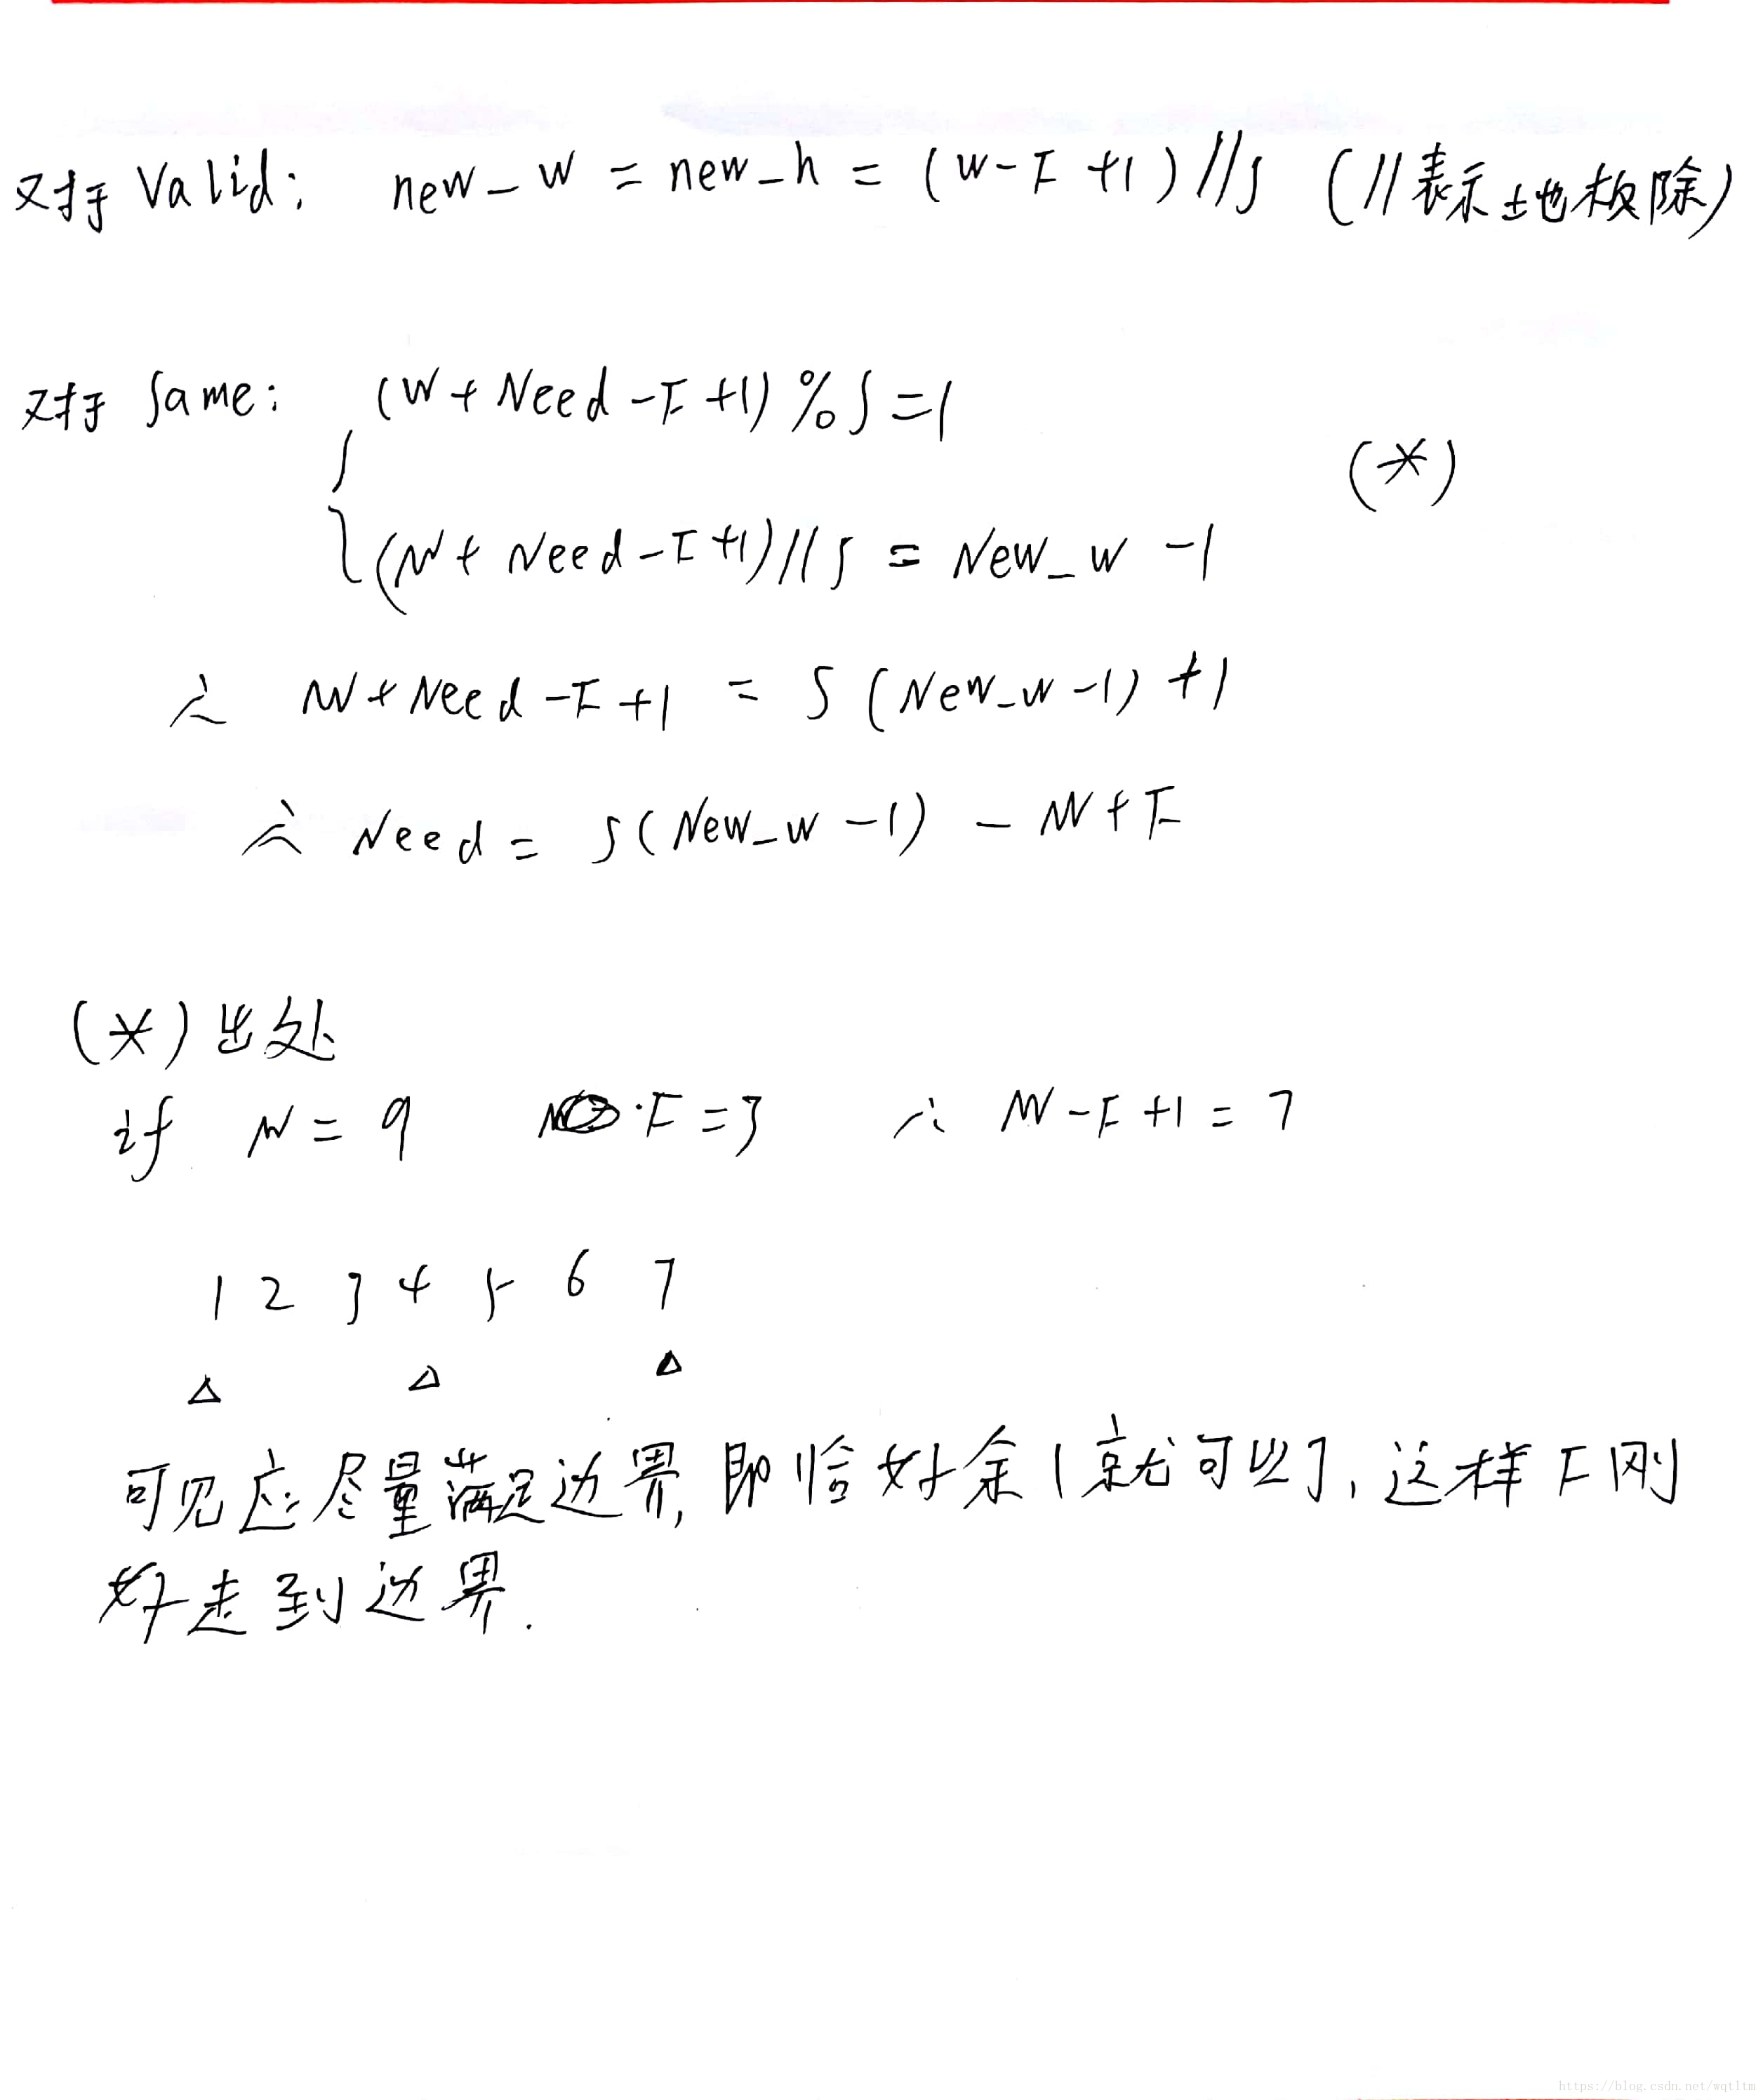 对于 Valid: new_w = new_h = (w-F+1)//S (//表示土地板除)
对于 Same: (W+Need-F+1)%S=1
(*)
(W+Need-F+1)//S = New_w -1
∴ W+Need-F+1 = S(New_w-1)+1
∴ Need = S(New_w-1) - W+F
(*)出处
if W=9 F=3 ∴ W-F+1=7
1 2 3 4 5 6 7
△ △ △
可见应尽量满足边界,即恰好余1就可以了,这样F刚
好走到边界.
https://blog.csdn.net/wqtltm